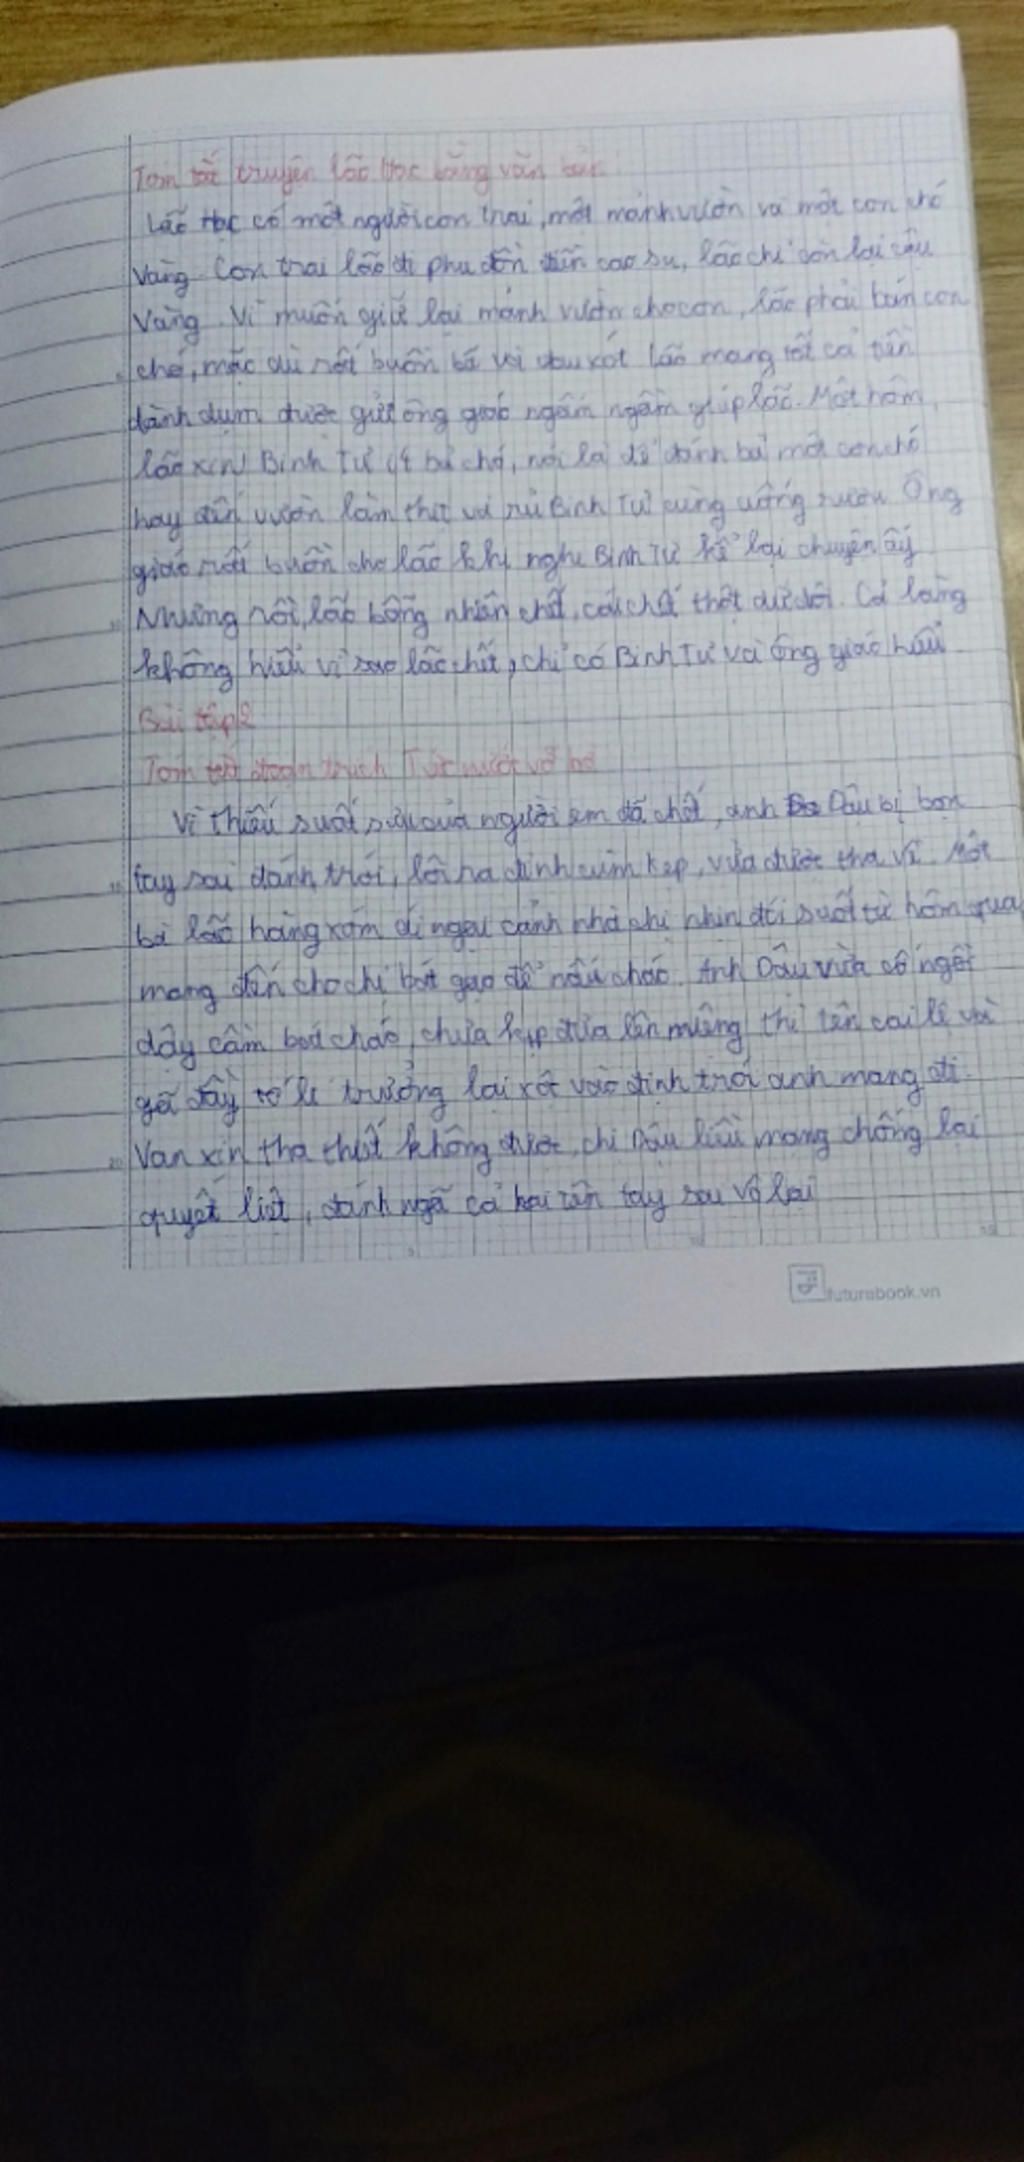 Tóm tắt truyện lão Hạc bằng văn bản
Lão Hạc có một người con trai, một mảnh vườn và một con chó
Vàng. Con trai lão đi phu đồn điền cao su, lão chỉ còn lại cậu
Vàng. Vì muốn giữ lại mảnh vườn cho con, lão phải bán con
chó, mặc dù rất buồn bã và đau xót. Lão mang tất cả tiền
dành dụm được gửi ông giáo ngấm ngầm giúp lão. Một hôm,
lão xin Binh Tư ít bả chó, nói là để đánh bả một con chó
hay đến vườn làm thịt và rủ Binh Tư cùng uống rượu. Ông
giáo rất buồn cho lão khi nghe Binh Tư kể lại chuyện ấy
Nhưng rồi, lão bỗng nhiên chết, cái chết thật dữ dội. Cả làng
không hiểu vì sao lão chết, chỉ có Binh Tư và ông giáo hiểu
Bài tập 2
Tóm tắt đoạn trích Tức nước vỡ bờ
Vì thiếu suất sưu của người em đã chết, anh Dậu bị bọn
tay sai đánh trói, lôi ra đình cùm kẹp, vừa được tha về. Một
bà lão hàng xóm ái ngại cảnh nhà chị nhịn đói suốt từ hôm qua
mang đến cho chị bát gạo để nấu cháo. Anh Dậu vừa cố ngồi
dậy cầm bát cháo, chưa kịp đưa lên miệng thì tên cai lệ và
gã đầy tớ lí trưởng lại xộc vào định trói anh mang đi.
Van xin tha thiết không được, chị Dậu liều mạng chống lại
quyết liệt, đánh ngã cả hai tên tay sai vô lại
futurebook.vn